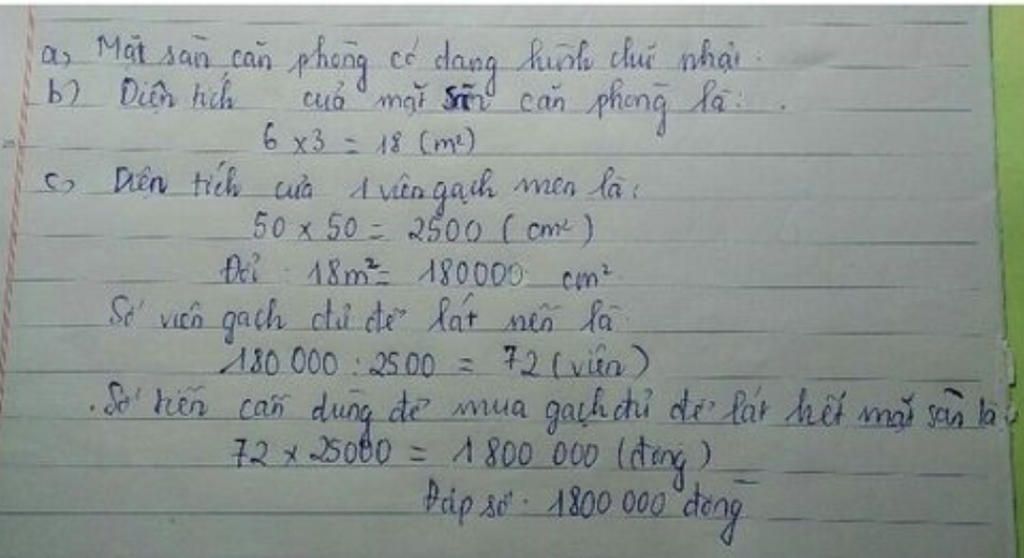 a, Mặt sàn căn phòng có dạng hình chữ nhật.
b) Diện tích của mặt sàn căn phòng là:
6 x 3 = 18 (m²)
c, Diện tích của 1 viên gạch men là:
50 x 50 = 2500 (cm²)
Đổi: 18m² = 180000 cm²
Số viên gạch đủ để lát nền là
180 000 : 2500 = 72 (viên)
Số tiền cần dùng để mua gạch đủ để lát hết mặt sàn là:
72 x 25000 = 1 800 000 (đồng)
Đáp số: 1800 000 đồng